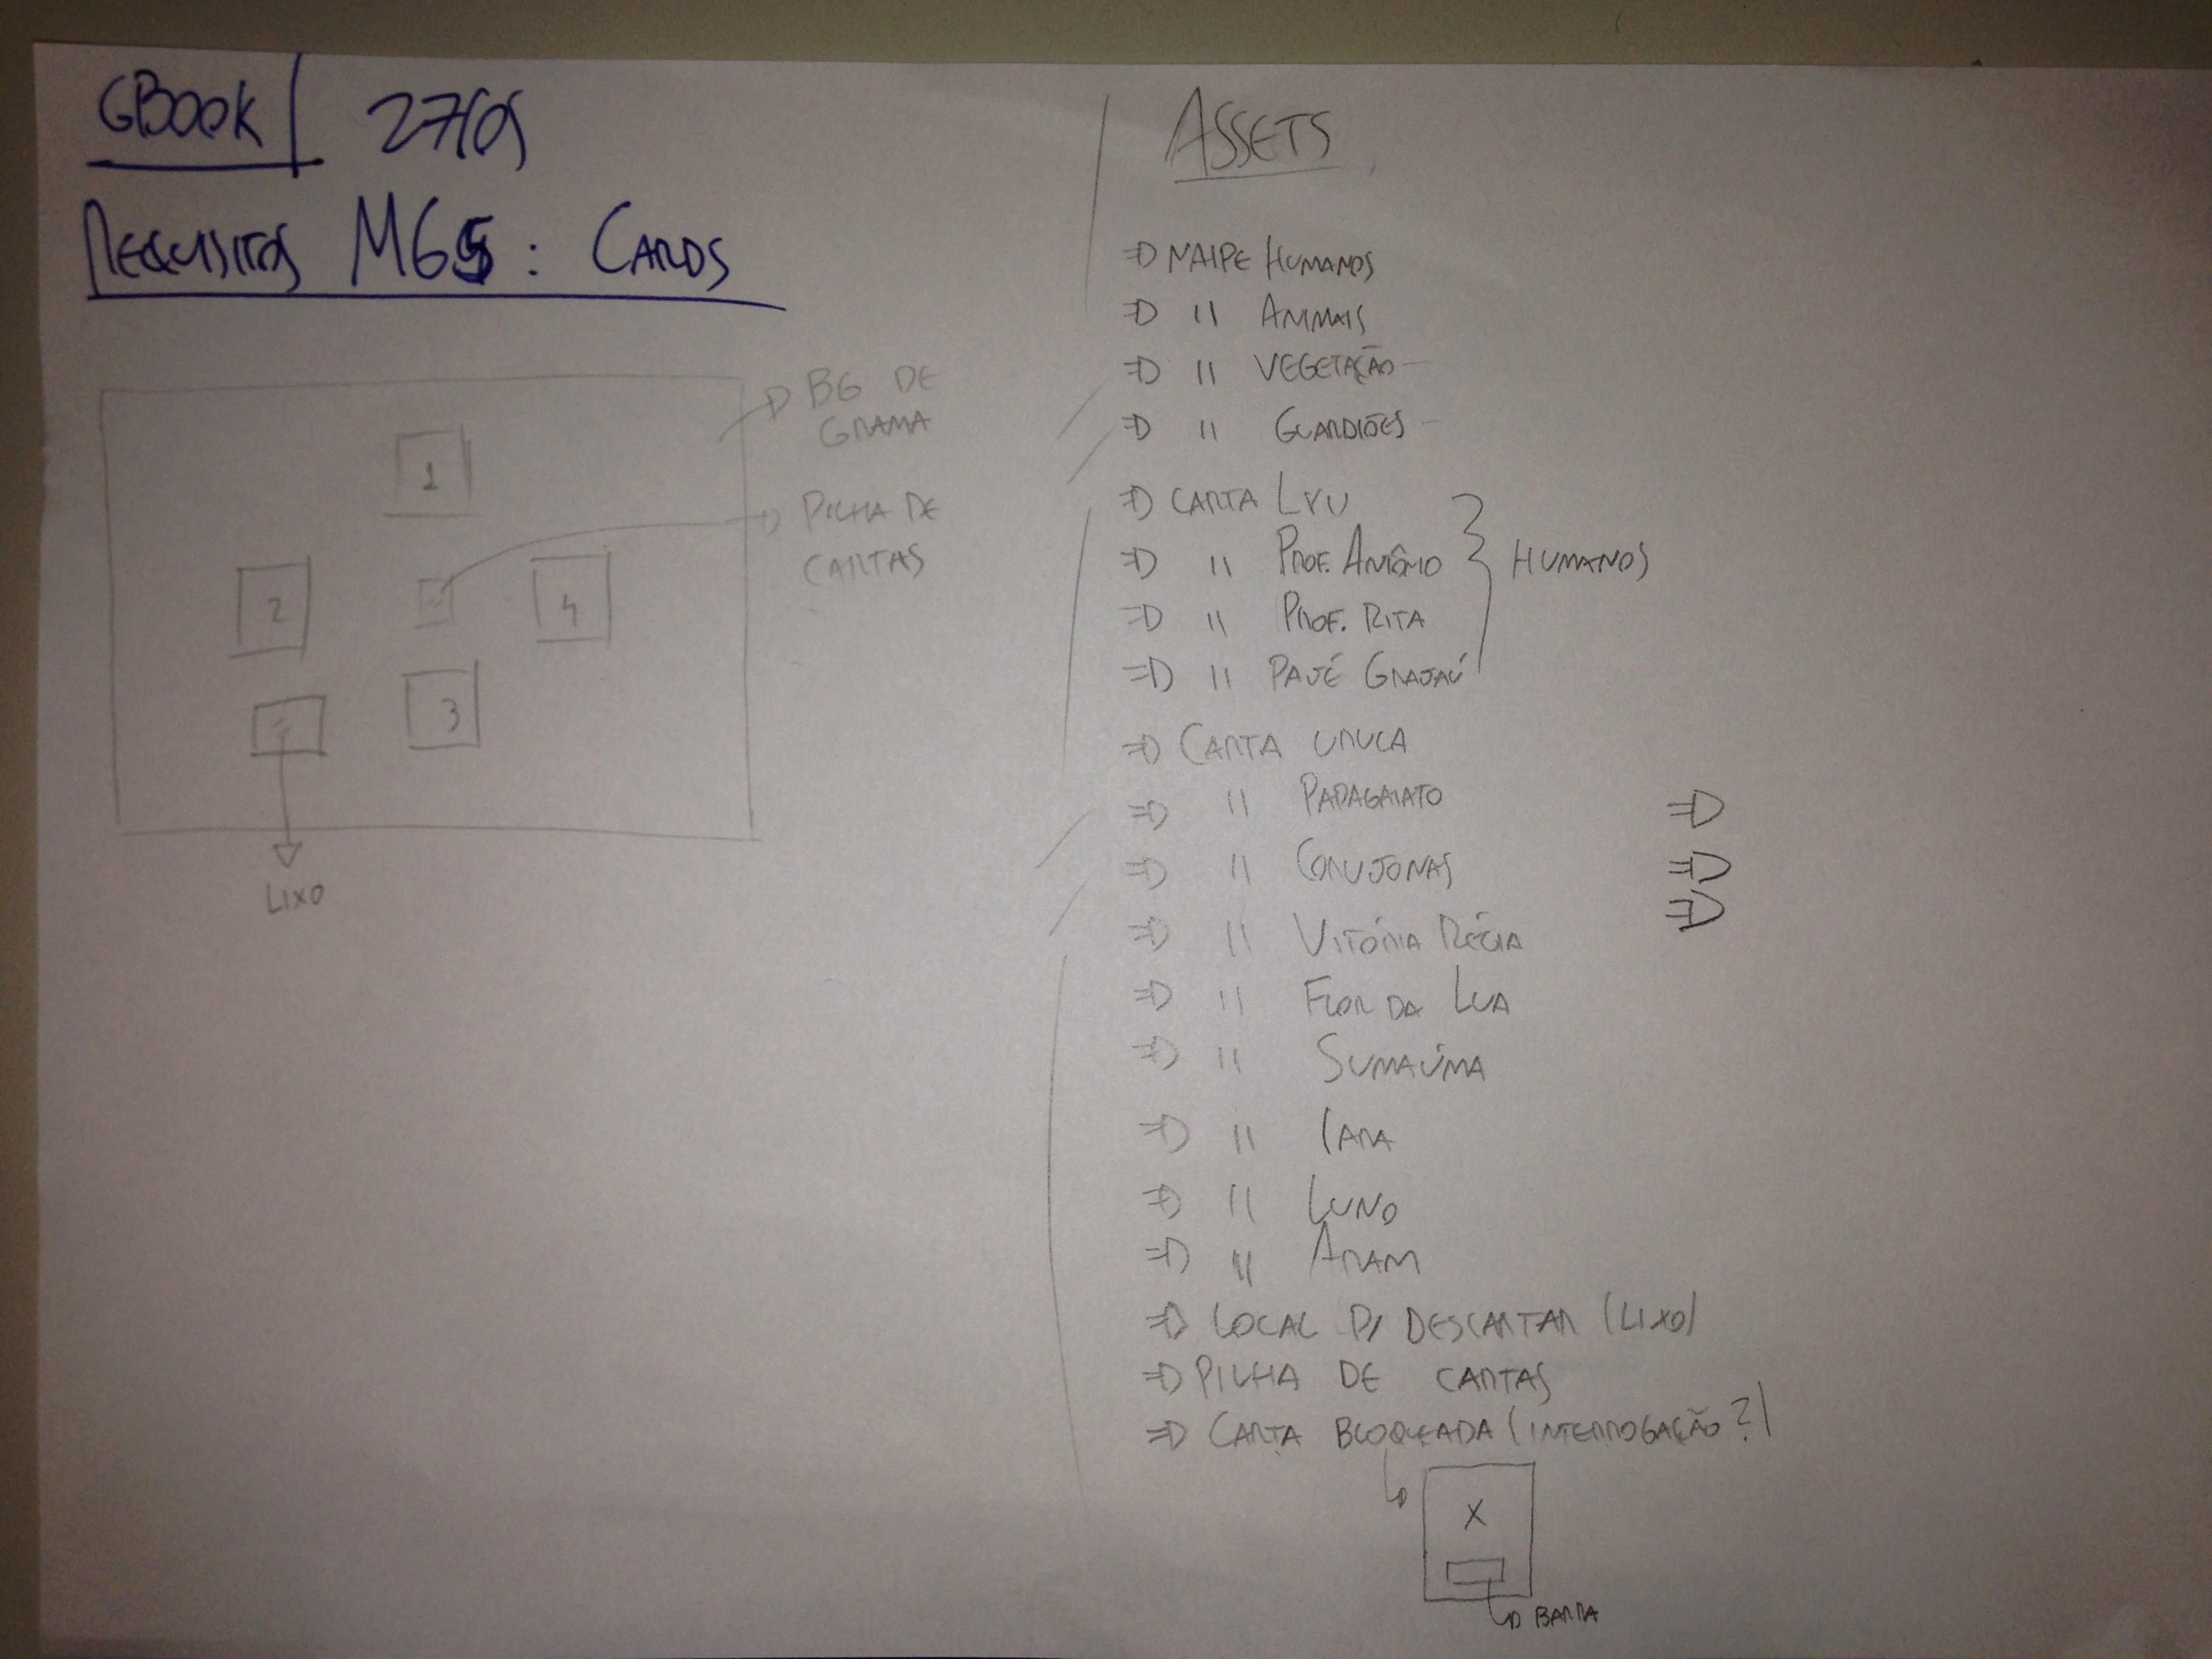 GBook | 27/05
Requisitos MG5: Cards
1
2
3
4
LIXO
BG DE
GRAMA
PILHA DE
CARTAS
ASSETS
⇒ NAIPE HUMANOS
⇒ " ANIMAIS
⇒ " VEGETAÇÃO
⇒ " GUARDIÕES
⇒ CARTA
⇒ " PROF. ANTÔNIO
⇒ " PROF. RITA
⇒ " PAJÉ
} HUMANOS
⇒ CARTA
⇒ " PAPAGAIATO
⇒ " CORUJONAS
⇒ " VITÓRIA RÉGIA
⇒ " FLOR DA LUA
⇒ " SUMAÚMA
⇒ " IARA
⇒ "
⇒ "
⇒ LOCAL P/ DESCARTAR (LIXO)
⇒ PILHA DE CARTAS
⇒ CARTA BLOQEADA (INTERROGAÇÃO?)
X
BARRA
⇒
⇒
⇒